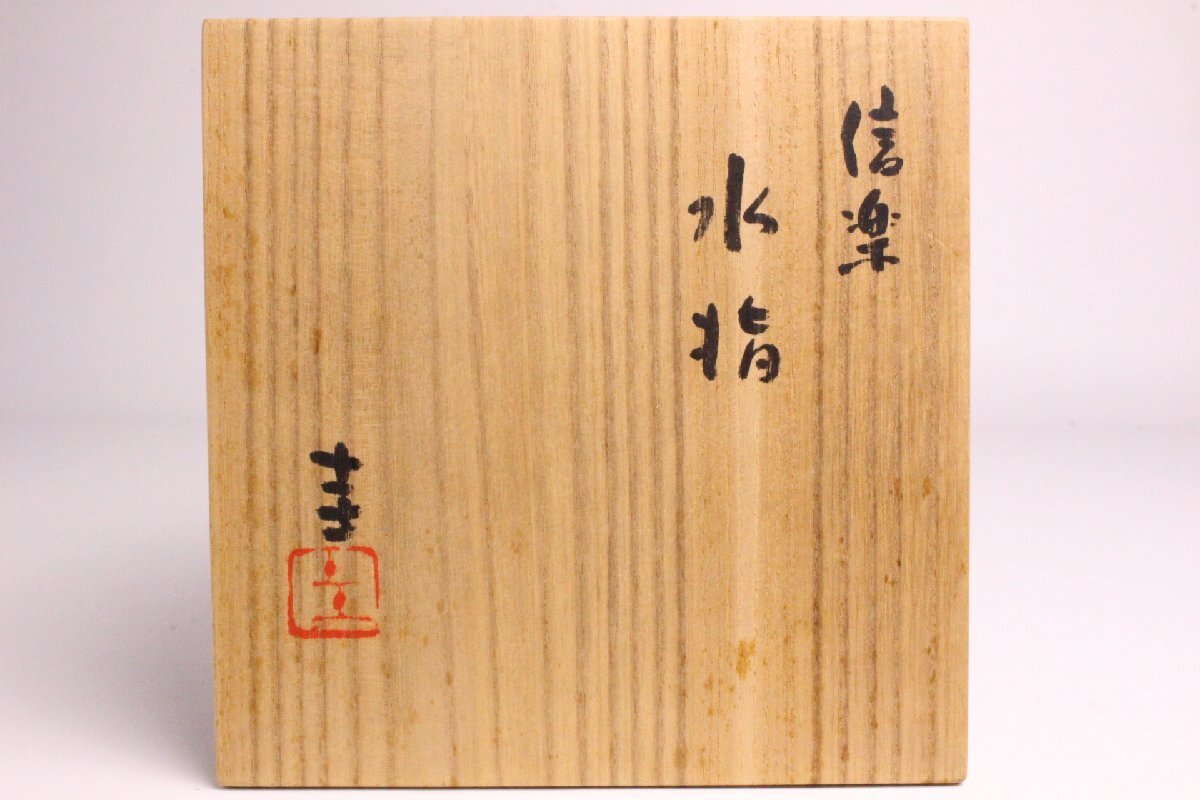 信楽
水指
圭